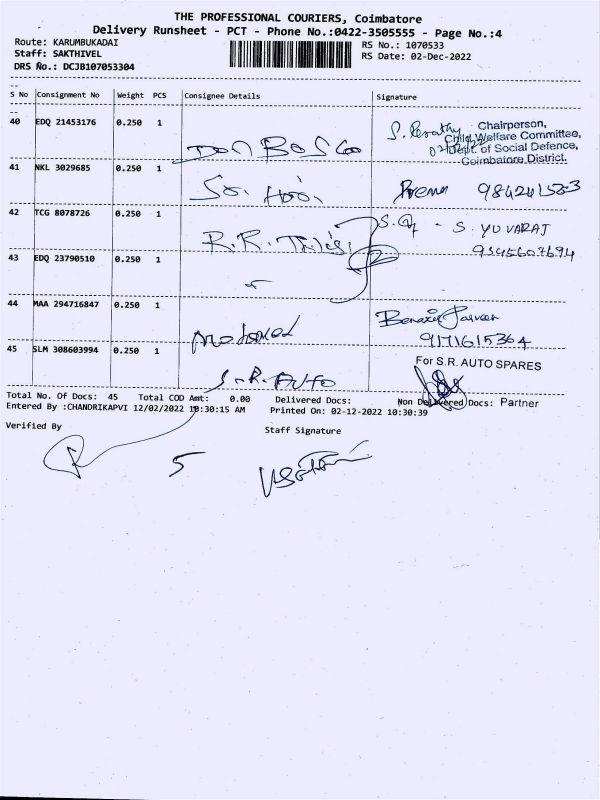 THE PROFESSIONAL COURIERS, Coimbatore
Delivery Runsheet - PCT - Phone No.:0422-3505555 - Page No.:4
Route: KARUMBUKADAI
RS No.: 1070533
Staff: SAKTHIVEL
RS Date: 02-Dec-2022
DRS No.: DCJB107053304
S No Consignment No Weight PCS Consignee Details Signature
40 EDQ 21453176 0.250 1
Chairperson,
Child Welfare Committee,
Dept. of Social Defence,
Coimbatore District.
DON BOSCO
41 NKL 3029685 0.250 1
Prema
42 TCG 8078726 0.250 1
S. YUVARAJ
R.R.
9345607694
43 EDQ 23790510 0.250 1
44 MAA 294716847 0.250 1
Mohamed
9171615364
45 SLM 308603994 0.250 1
For S.R. AUTO SPARES
S.R. AUTO
Total No. Of Docs: 45 Total COD Amt: 0.00 Delivered Docs: Non Delivered Docs: Partner
Entered By :CHANDRIKAPVI 12/02/2022 10:30:15 AM Printed On: 02-12-2022 10:30:39
Verified By
Staff Signature
5